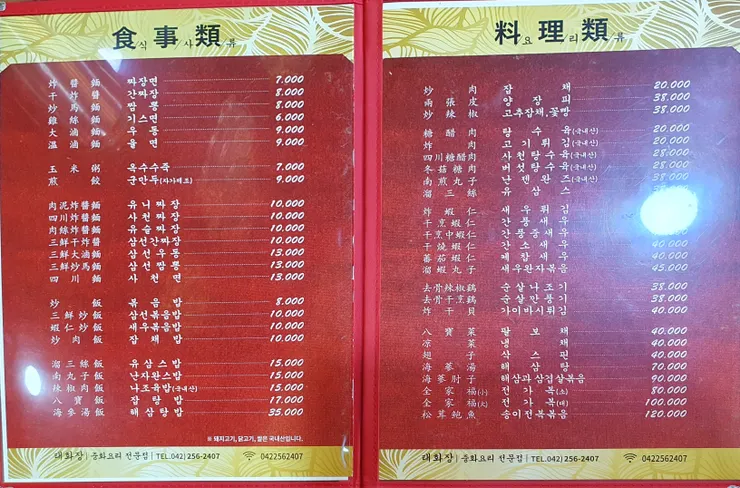 食식事사類류
炸醬麵 짜장면 7.000
干炸麵 간짜장 8.000
炒馬麵 짬뽕 8.000
雞絲麵 기스면 6.000
大滷麵 우동 9.000
溫滷麵 울면 9.000
玉米粥 옥수수죽 7.000
煎餃 군만두(자가제조) 9.000
肉泥炸醬麵 유니짜장 10.000
四川炸醬麵 사천짜장 10.000
肉絲炸醬麵 유슬짜장 10.000
三鮮干炸醬 삼선간짜장 10.000
三鮮大滷麵 삼선우동 13.000
三鮮炒馬麵 삼선짬뽕 13.000
四川麵 사천면 13.000
炒飯 볶음밥 8.000
三鮮炒飯 삼선볶음밥 10.000
蝦仁炒飯 새우볶음밥 10.000
炒肉飯 잡채밥 10.000
溜三絲飯 유삼스밥 15.000
南丸子飯 난자완스밥 15.000
辣椒肉飯 나조육밥(국내산) 15.000
八寶飯 잡탕밥 17.000
海參湯飯 해삼탕밥 35.000
※ 돼지고기, 닭고기, 쌀은 국내산입니다.
태화장 | 중화요리 전문점 | TEL.042) 256-2407 0422562407
料요理리類류
炒肉 잡채 20.000
兩張皮 양장피 38.000
炒辣椒 고추잡채,꽃빵 38.000
糖醋肉 탕수육(국내산) 20.000
炸肉 고기튀김(국내산) 20.000
四川糖醋肉 사천탕수육(국내산) 28.000
冬菇糖肉 버섯탕수육(국내산) 28.000
南煎丸子 난덴완즈(국내산) 38.000
溜三絲 유삼스
炸蝦仁 새우튀김
干烹蝦仁 간풍새우
干烹中蝦仁 간풍중새우
干燒蝦仁 간소새우 40.000
蕃茄蝦仁 제찹새우 40.000
溜蝦丸子 새우완자볶음 45.000
去骨辣椒鷄 순살나조기 38.000
去骨干烹鷄 순살깐풍기 38.000
炸干貝 가이바시튀김 40.000
八寶菜 팔보채 40.000
凉菜 냉채 40.000
翅子 삭스핀 40.000
海蔘湯 해삼탕 70.000
海蔘肘子 해삼과삼겹살볶음 90.000
全家福(小) 전가복(소) 80.000
全家福(大) 전가복(대) 100.000
松茸鮑魚 송이전복볶음 120.000
태화장 | 중화요리 전문점 | TEL.042) 256-2407 0422562407